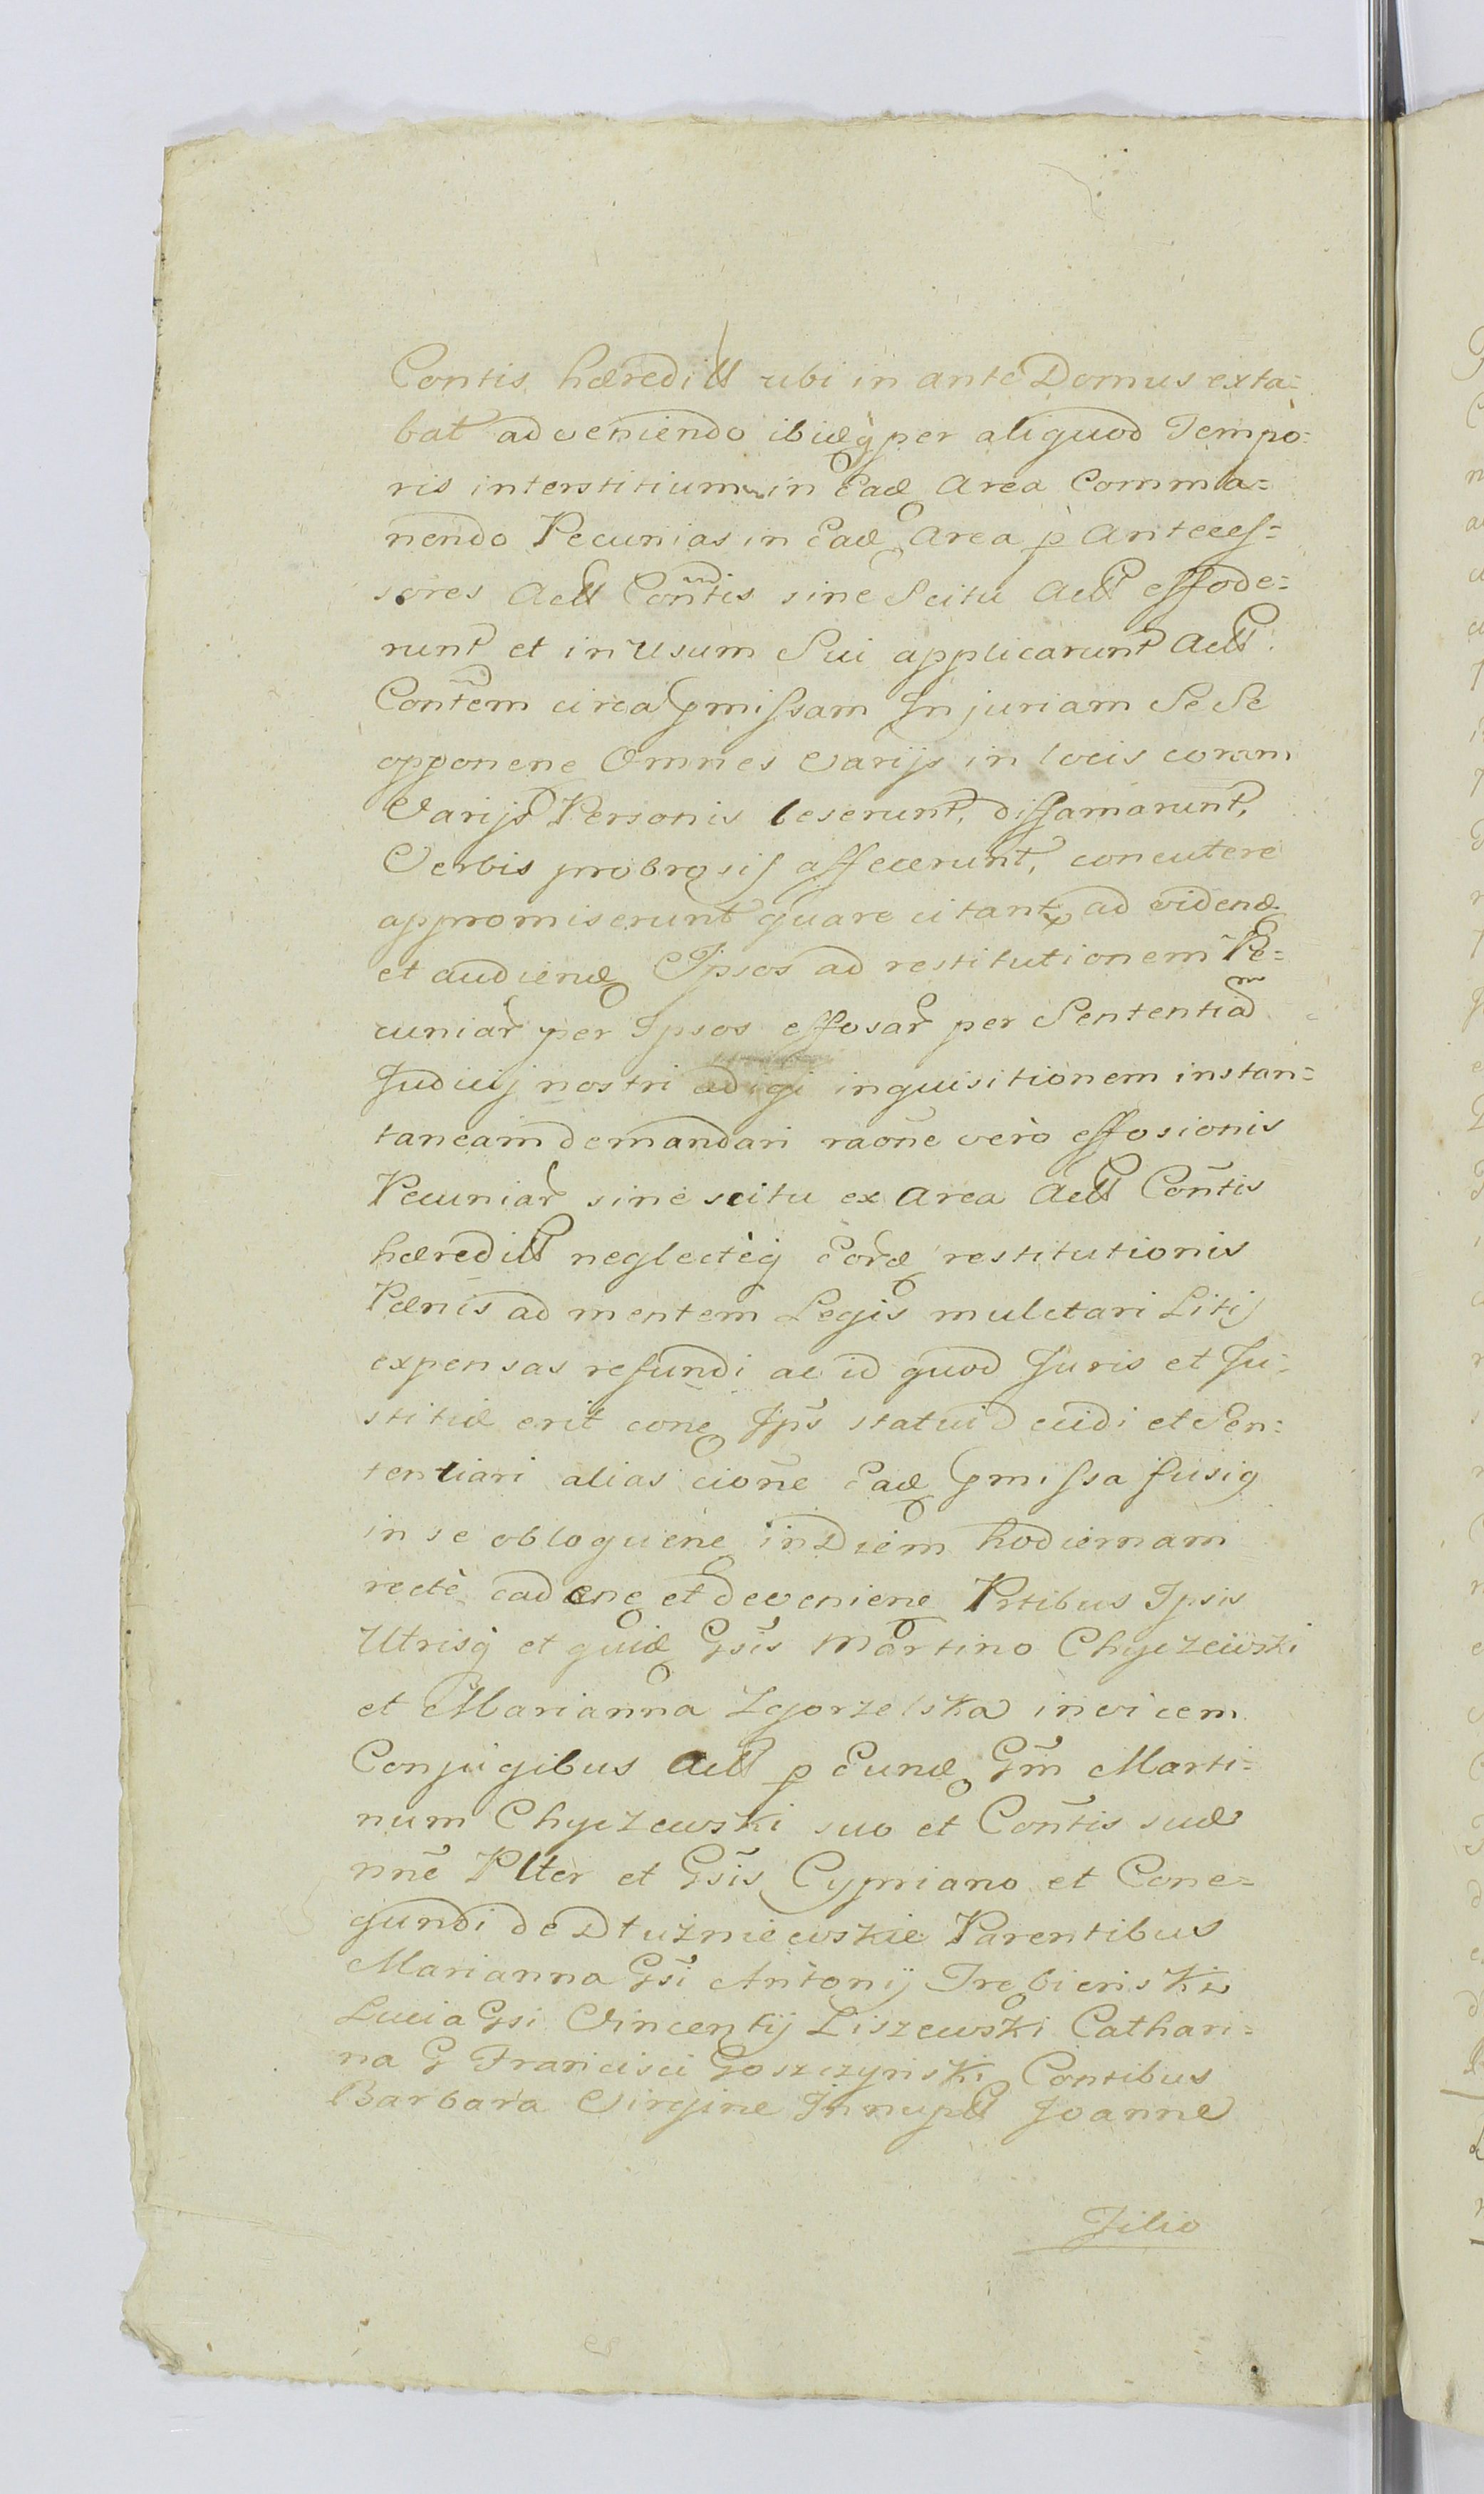 Contis hæredill ubi in ante Domus exta=
bat adveniendo ibidq̀ per aliquod Tempo=
ris interstitium in Ead Area Comma=
nendo Pecunias in Ead Area p Anteces=
sores Actt Contis sine Scitu Actt effode=
runt et in Usum Sui applicarunt Actt
Contem circa pmissam Injuriam Se Se
opponene Omnes Varijs in locis coram
Varijs Personis leserunt, diffamarunt,
Verbis probrosis affecerunt, concutere
appromiserunt quare citant ad videnđ
et audienđ Ipsos ad restitutionem Pe=
cuniar per Ipsos effosar per Sententiam
Judicij nostri adigi inquisitionem instan=
taneam demandari raõne verò effosionis
Pecuniar sine scitu ex Area Actt Conĩtis
hæredill neglectèq̀ Eord restitutionis
Pænis ad mentem Legis mulctari Litis
expensas refundi ac id quod Juris et Ju=
stitiæ erit cone Ips statui D ecidi et Sen=
tentiari alias cione Ead pmissa fusiq
in se obloquene in Diem hodiernam
rectè cadene et deveniene Prtibus Ipsis
Utrisq̀ et quid Gsis Martino Chyczewski
et Marianna Zgorzelska invicem
Conjugibus Actt p Eund Gm Marti=
num Chyczewski suo et Contis suæ
nñe Plter et Gsis Cypriano et Cone=
gundi de Dłużniewskie Parentibus
Marianna Gsi Antonij Trebienski
Lucia Gsi Vincentij Liszewski Cathari=
na G Francisci Goszczynski Contibus
Barbara Virgine Innupll Joanne
Filio